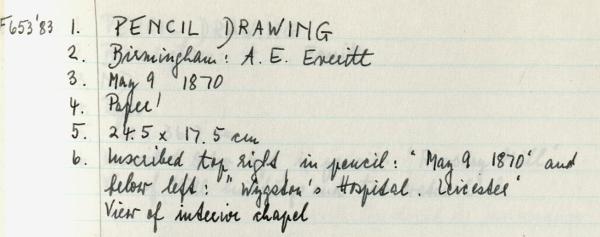 F653'83 1. PENCIL DRAWING
2. Birmingham: A. E. Everitt
3. May 9 1870
4. Paper
5. 24.5 x 17.5 cm
6. Inscribed top right in pencil: "May 9 1870" and
below left: "Wygston's Hospital. Leicester"
View of interior chapel